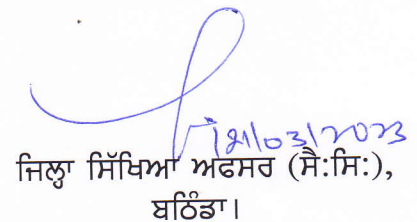 21/03/2023
ਜਿਲ੍ਹਾ ਸਿੱਖਿਆ ਅਫਸਰ (ਸੈ:ਸਿ:),
ਬਠਿੰਡਾ।